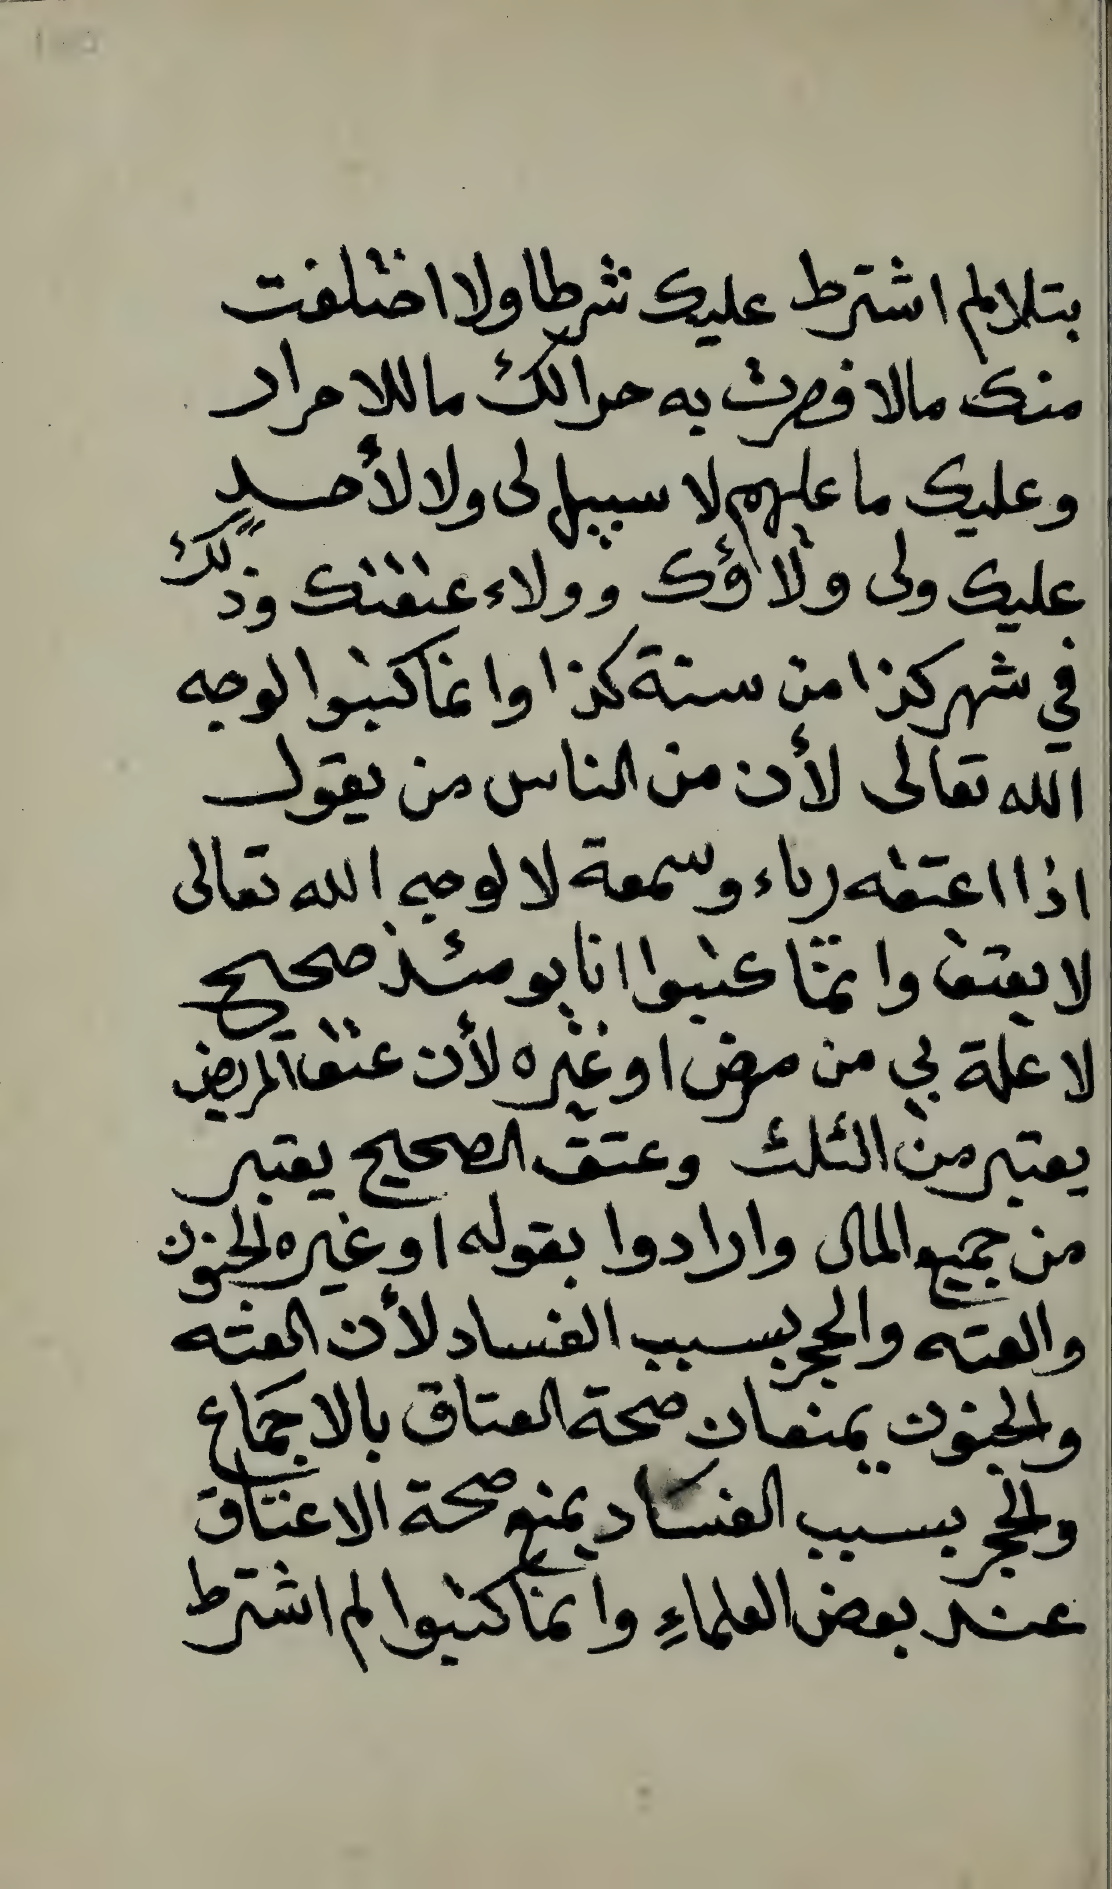 بتلا لم اشترط عليك شرطا ولا اختلفت
منك مالا فصرت به حرا لك ما للاحرار
وعليك ما عليهم لا سبيل لى ولا لأحد
عليك ولى ولاؤك وولاء عتقتك وذلك
في شهر كذا من سنة كذا وانما كتبوا لوجه
الله تعالى لأن من الناس من يقول
اذا اعتقه رياء وسمعة لا لوجه الله تعالى
لا يعتق وانما كتبوا انا يومئذ صحيح
لا علة بي من مرض او غيره لأن عتق المريض
يعتبر من الثلث وعتق الصحيح يعتبر
من جميع المال وارادوا بقوله او غيره الجنون
والعته والحجر بسبب الفساد لأن العته
والجنون يمنعان صحة العتاق بالاجماع
والحجر بسبب الفساد يمنع صحة الاعتاق
عند بعض العلماء وانما كتبوا لم اشترط